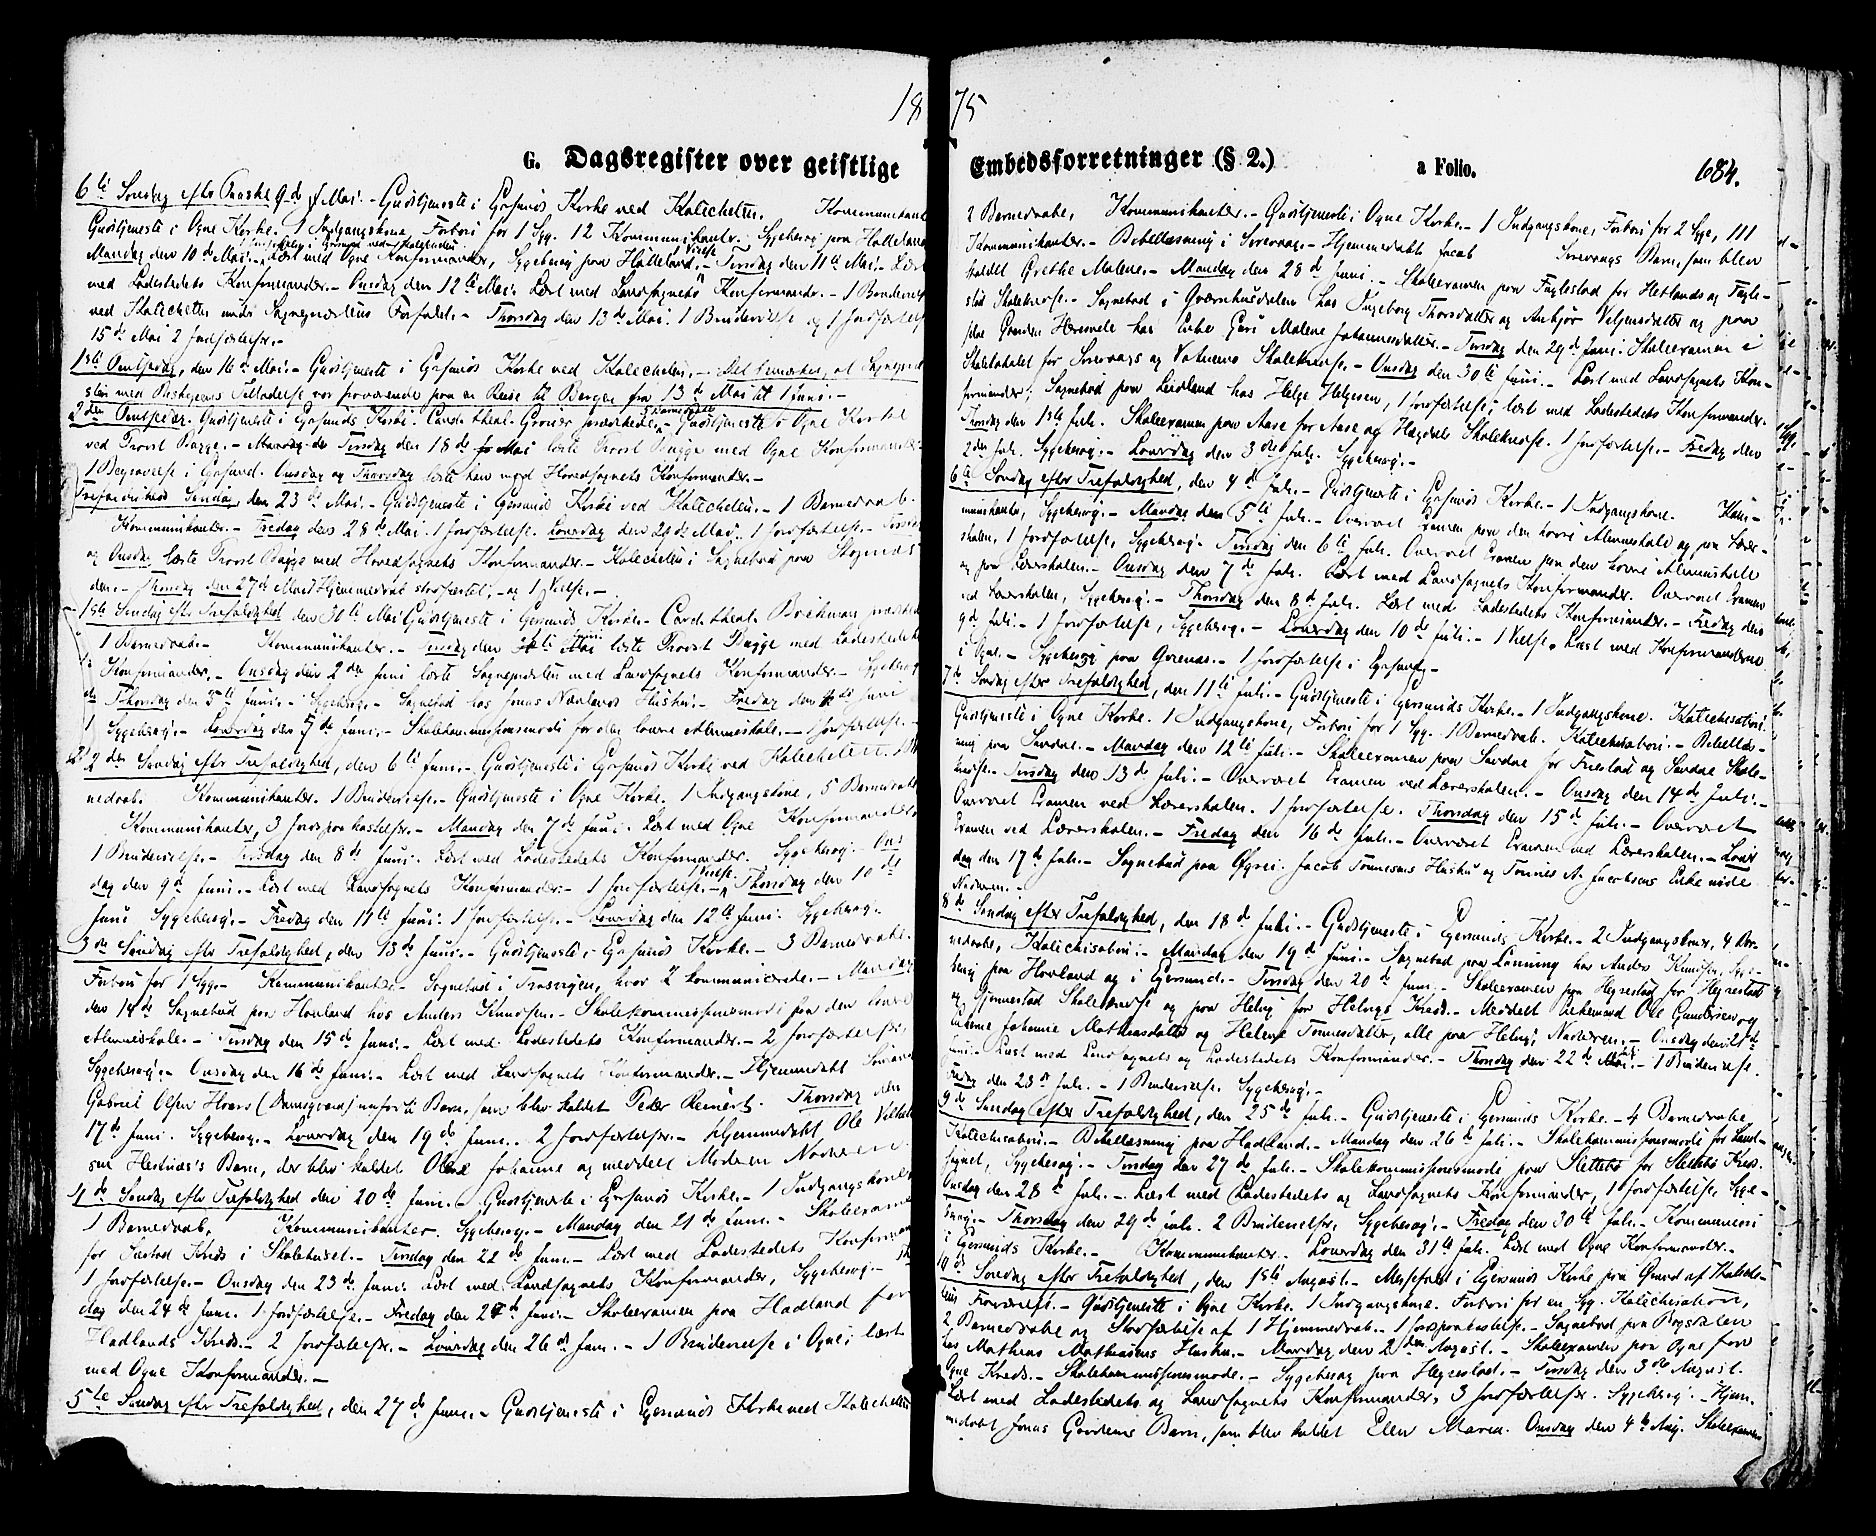 1875
G. Dagsregister over geistlige Embedsforretninger (§ 2.) a Folio. 684.
6te Søndag efter Paaske 9de Mai.- Gudstjeneste i Egersunds Kirke ved Katecheten. Kommunikanter
Gudstjeneste i Ogne Kirke. 1 Indgangskone, Forbøn for 1 Syg. 12 Kommunikanter. Sygebesøg paa Halleland
Mandag den 10de Mai.- Læst med Ogne Konfirmander, Sygebesøg paa Halleland.- Tirsdag den 11te Mai.- Læst
med Ladestedets Konfirmander.- Onsdag den 12te Mai. Læst med Landsognets Konfirmander.- 1 Brudevielse
ved Katecheten under Sognepræstens Forfald.- Thorsdag den 13de Mai. 1 Brudevielse og 1 Jordfæstelse
15de Mai 2 Jordfæstelser.-
1ste Pintsedag, den 16de Mai.- Gudstjeneste i Egersunds Kirke ved Katecheten.- Det bemærkes, at Sognepræ-
sten med Biskopens Tilladelse var fraværende paa en Reise til Bergen fra 13de Mai til 1 Juni.-
2den Pintsedag. Gudstjeneste i Egersunds Kirke. Cand. theol. prædikede.- Gudstjeneste i Ogne Kirke
ved Provst Bugge.- Tirsdag den 18de Mai læste Provst Bugge med Ogne Konfirmander
1 Begravelse i Egersund. Onsdag og Thorsdag læste han med Hovedsognets Konfirmander.-
Trefoldigheds Søndag, den 23de Mai.- Gudstjeneste i Egersunds Kirke ved Katecheten.- 1 Barnedaab.
Kommunikanter.- Fredag den 28de Mai. 1 Jordfæstelse. Løverdag den 29de Mai. 1 Jordfæstelse.- Tirsdag
og Onsdag læste Provst Bugge med Hovedsognets Konfirmander.- Katecheten i Sognebud paa
den.- Thorsdag den 27de Mai Hjemmedaab stadfæstet,- og 1 Vielse.-
1ste Søndag efter Trefoldighed den 30te Mai Gudstjeneste i Egersunds Kirke.- Cand. theol. Brekman prædikede
1 Barnedaab.- Kommunikanter.- Tirsdag den læste Provst Bugge med Ladestedets
Konfirmander.- Onsdag den 2den Juni læste Sognepræsten med Landsognets Konfirmander.- Sygebesøg
Thorsdag den 3de Juni.- Sygebesøg.- Sognebud hos Jonas Nævlands Hustru.- Fredag den 4de Juni
1 Sygebesøg.- Løverdag den 5de Juni.- Skolekommissionsmøde for den lavere Almueskole.- 1 Jordfæstelse.-
2den Søndag efter Trefoldighed, den 6te Juni.- Gudstjeneste i Egersunds Kirke ved Katecheten. 1 Bar-
nedaab. Kommunikanter. 1 Brudevielse.- Gudstjeneste i Ogne Kirke. 1 Indgangskone, 5 Barnedaab
Kommunikanter, 3 Jordpaakastelser.- Mandag den 7de Juni. Læst med Ogne Konfirmander
1 Brudevielse.- Tirsdag den 8de Juni. Læst med Ladestedets Konfirmander. Sygebesøg. Ons
dag den 9de Juni.- Læst med Landsognets Konfirmander.- 1 Jordfæstelse.- 1 Vielse.- Thorsdag den 10de
Juni Sygebesøg.- Fredag den 11te Juni. 1 Jordfæstelse.- Løverdag den 12te Juni. Sygebesøg.
3die Søndag efter Trefoldighed, den 13de Juni.- Gudstjeneste i Egersunds Kirke.- 3 Barnedaab.
Forbøn for 1 Syg.- Kommunikanter.- Sognebud i, hvor 2 kommunicerede.- Mandag
den 14de Sognebud paa Hovland hos Anders Knudsen.- Skolekommissionsmøde for den lavere
Almueskole.- Tirsdag den 15de Juni.- Læst med Ladestedets Konfirmander.- 2 Jordfæstelser,
Sygebesøg.- Onsdag den 16de Juni.- Læst med Landsognets Konfirmander.- Hjemmedøbt
Gabriel Olsen Barn, som blev kaldet Peder Reinert. Thorsdag den
17de Juni. Sygebesøg.- Løverdag den 19de Juni. 2 Jordfæstelser.- Hjemmedøbt Ole
sen Hestnæs's Barn, der blev kaldet Johanne og meddelt Moderen Nadveren
4de Søndag efter Trefoldighed den 20de Juni.- Gudstjeneste i Egersunds Kirke.- 1 Indgangskone
1 Barnedaab, Kommunikanter. Sygebesøg.- Mandag den 21de Juni.- Skoleexamen
for Kreds i Skolehuset.- Tirsdag den 22de Juni.- Læst med Ladestedets Konfirmander
1 Jordfæstelse.- Onsdag den 23de Juni. Læst med Landsognets Konfirmander, Sygebesøg.-
dag den 24de Juni. 1 Jordfæstelse.- Fredag den Juni.- Skoleexamen paa Hadland for
Hadlands Kreds.- 2 Jordfæstelser.- Løverdag den 26de Juni.- 1 Brudevielse i Ogne; læst
med Ogne Konfirmander.-
5te Søndag efter Trefoldighed, den 27de Juni.- Gudstjeneste i Egersunds Kirke ved Katecheten
2 Barnedaab, Kommunikanter.- Gudstjeneste i Ogne Kirke.- 1 Indgangskone, Forbøn for 2 Syge, 111
Kommunikanter.- Bibellæsning i Sirevaag.- Hjemmedøbt Jacob Sirevaags Barn, som blev
kaldet Grethe Malene.- Mandag den 28de Juni.- Skoleexamen paa Fuglestad for Hetlands og Fugle-
stad Skolekreds.- Sognebud i Qværnhusdalen hos Ingeborg Thorsdatter og og paa
hos Enke Malene Johannesdatter.- Tirsdag den 29de Juni. Skoleexamen i
Skolelokalet for Sirevaags og Skolekredse.- Onsdag den 30te Juni.- Læst med Landsognets Kon-
firmander; Sognebud paa Leidland hos Helge Helgesen, 1 Jordfæstelse; læst med Ladestedets Konfirmander.
Thorsdag den 1ste Juli. Skoleexamen paa Aase for Aase og Skolekredse. 1 Jordfæstelse.- Fredag den
2den Juli. Sygebesøg.- Løverdag den 3die Juli. Sygebesøg.-
6te Søndag efter Trefoldighed, den 4de Juli.- Gudstjeneste i Egersunds Kirke.- 1 Indgangskone. Kom-
munikanter, Sygebesøg.- Mandag den 5te Juli.- Overværet Examen paa den lavere Almueskole og paa Lærer-
skolen, 1 Jordfæstelse, Sygebesøg.- Tirsdag den 6te Juli. Overværet Examen paa den lavere Almueskole
og paa Lærerskolen.- Onsdag den 7de Juli. Læst med Landsognets Konfirmander. Overværet Examen
ved Lærerskolen, Sygebesøg.- Thorsdag den 8de Juli. Læst med Ladestedets Konfirmander.- Fredag den
9de Juli.- 1 Jordfæstelse, Sygebesøg.- Løverdag den 10de Juli.- 1 Vielse. Læst med Konfirmanderne
i Ogne.- Sygebesøg paa.- 1 Jordfæstelse i Egersund.-
7de Søndag efter Trefoldighed, den 11te Juli.- Gudstjeneste i Egersunds Kirke.- 1 Indgangskone. Katechisation.
Gudstjeneste i Ogne Kirke. 1 Indgangskone, Forbøn for 1 Syg. 1 Barnedaab. Katechisation.- Bibellæs-
ning paa.- Mandag den 12te Juli.- Skoleexamen paa for og Skole-
kredse.- Tirsdag den 13de Juli.- Overværet Examen ved Lærerskolen.- Onsdag den 14de Juli.-
Overværet Examen ved Lærerskolen. 1 Jordfæstelse. Thorsdag den 15de Juli.- Overværet
Examen ved Lærerskolen.- Fredag den 16de Juli.- Overværet Examen ved Lærerskolen.- Løver
dag den 17de Juli.- Sognebud paa. Jacob Tønnesens Hustru og Tønnes A. Jacobsens Enke nøde
Nadveren.-
8de Søndag efter Trefoldighed, den 18de Juli.- Gudstjeneste i Egersunds Kirke.- 2 Indgangskoner, 4 Bar-
nedaab, Katechisation.- Mandag den 19de Juni.- Sognebud paa hos Anders Knudsen, Syge-
besøg paa Hovland og i Egersund.- Tirsdag den 20de Juni.- Skoleexamen paa Hegrestad for Hegrestad
og Gjennestad Skolekredse og paa Helvig for Helvigs Kreds.- Meddelt Enkemand Ole Gundersen og
Enkerne Johanne Mathiasdatter og Helene Tønnesdatter, alle paa Helvig, Nadveren.- Onsdag den 21de
Juni.- Læst med Landsognets og Ladestedets Konfirmander.- Thorsdag den 22de Juli.- 1 Brudevielse.
Fredag den 23de Juli.- 1 Brudevielse. Sygebesøg.-
9de Søndag efter Trefoldighed, den 25de Juli.- Gudstjeneste i Egersunds Kirke.- 4 Barnedaab,
Katechisation.- Bibellæsning paa Hadland.- Mandag den 26de Juli.- Skolekommissionsmøde for Land-
sognet, Sygebesøg.- Tirsdag den 27de Juli.- Skolekommissionsmøde paa Slettebø for Slettebø Kreds.
Onsdag den 28de Juli.- Læst med Ladestedets og Landsognets Konfirmander, 1 Jordfæstelse, Syge-
besøg.- Thorsdag den 29de Juli. 2 Brudevielser, Sygebesøg.- Fredag den 30te Juli.- Kommunion
i Egersunds Kirke.- Kommunikanter. Løverdag den 31te Juli. Læst med Ogne Konfirmander.-
10de Søndag efter Trefoldighed, den 1ste August.- Messefald i Egersunds Kirke paa Grund af Kateche-
tens Fravær.- Gudstjeneste i Ogne Kirke. 1 Indgangskone. Forbøn for en Syg. Katechisation,
2 Barnedaab og Stadfæstelse af 1 Hjemmedaab.- 1 Jordpaakastelse.- Sognebud paa Bogsdalen
hos Mathias Mathiasens Hustru.- Mandag den 2den August.- Skoleexamen paa Ogne for
Ogne Kreds.- Skolekommissionsmøde.- Sygebesøg paa Hegrestad.- Tirsdag den 3die August.
Læst med Ladestedets og Landsognets Konfirmander, 3 Jordfæstelser. Sygebesøg.- Hjem-
medøbt Jonas Barn, som blev kaldet Ellen Maria. Onsdag den 4de Aug. Skoleexamen